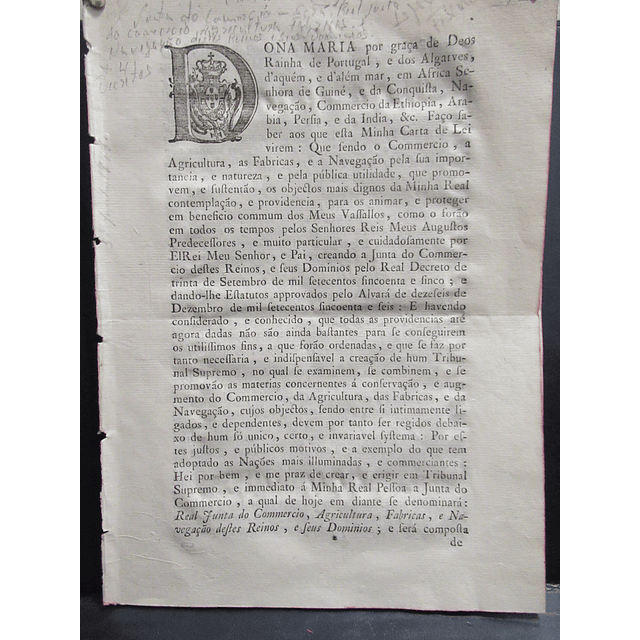 Junta do Commercio
do commercio, Agricultura, fabricas, e
Navegação destes Reinos e seus Dominios
DONA MARIA por graça de Deos
Rainha de Portugal , e dos Algarves,
d'aquém , e d'além mar, em Africa Se-
nhora de Guiné, e da Conquista, Na-
vegação , Commercio da Ethiopia, Ara-
bia, Persia, e da India, &c. Faço sa-
ber aos que esta Minha Carta de Lei
virem : Que sendo o Commercio , a
Agricultura , as Fabricas, e a Navegação pela sua impor-
tancia , e natureza , e pela pública utilidade, que promo-
vem, e sustentão, os objectos mais dignos da Minha Real
contemplação , e providencia, para os animar, e proteger
em beneficio commum dos Meus Vassallos, como o forão
em todos os tempos pelos Senhores Reis Meus Augustos
Predecessores , e muito particular , e cuidadosamente por
ElRei Meu Senhor, e Pai, creando a Junta do Commer-
cio destes Reinos, e seus Dominios pelo Real Decreto de
trinta de Setembro de mil setecentos sincoenta e sinco ; e
dando-lhe Estatutos approvados pelo Alvará de dezeseis de
Dezembro de mil setecentos sincoenta e seis : E havendo
considerado , e conhecido , que todas as providencias até
agora dadas não são ainda bastantes para se conseguirem
os utilissimos fins, a que forão ordenadas, e que se faz por
tanto necessaria, e indispensavel a creação de hum Tribu-
nal Supremo , no qual se examinem, se combinem , e se
promovão as materias concernentes á conservação , e aug-
mento do Commercio, da Agricultura, das Fabricas, e da
Navegação, cujos objectos, sendo entre si intimamente li-
gados, e dependentes, devem por tanto ser regidos debai-
xo de hum só unico, certo , e invariavel systema : Por es-
tes justos , e públicos motivos , e a exemplo do que tem
adoptado as Nações mais illuminadas , e commerciantes :
Hei por bem , e me praz de crear, e erigir em Tribunal
Supremo , e immediato á Minha Real Pessoa a Junta do
Commercio , a qual de hoje em diante se denominará :
Real Junta do Commercio, Agricultura, Fabricas, e Na-
vegação destes Reinos , e seus Dominios ; e será composta
de